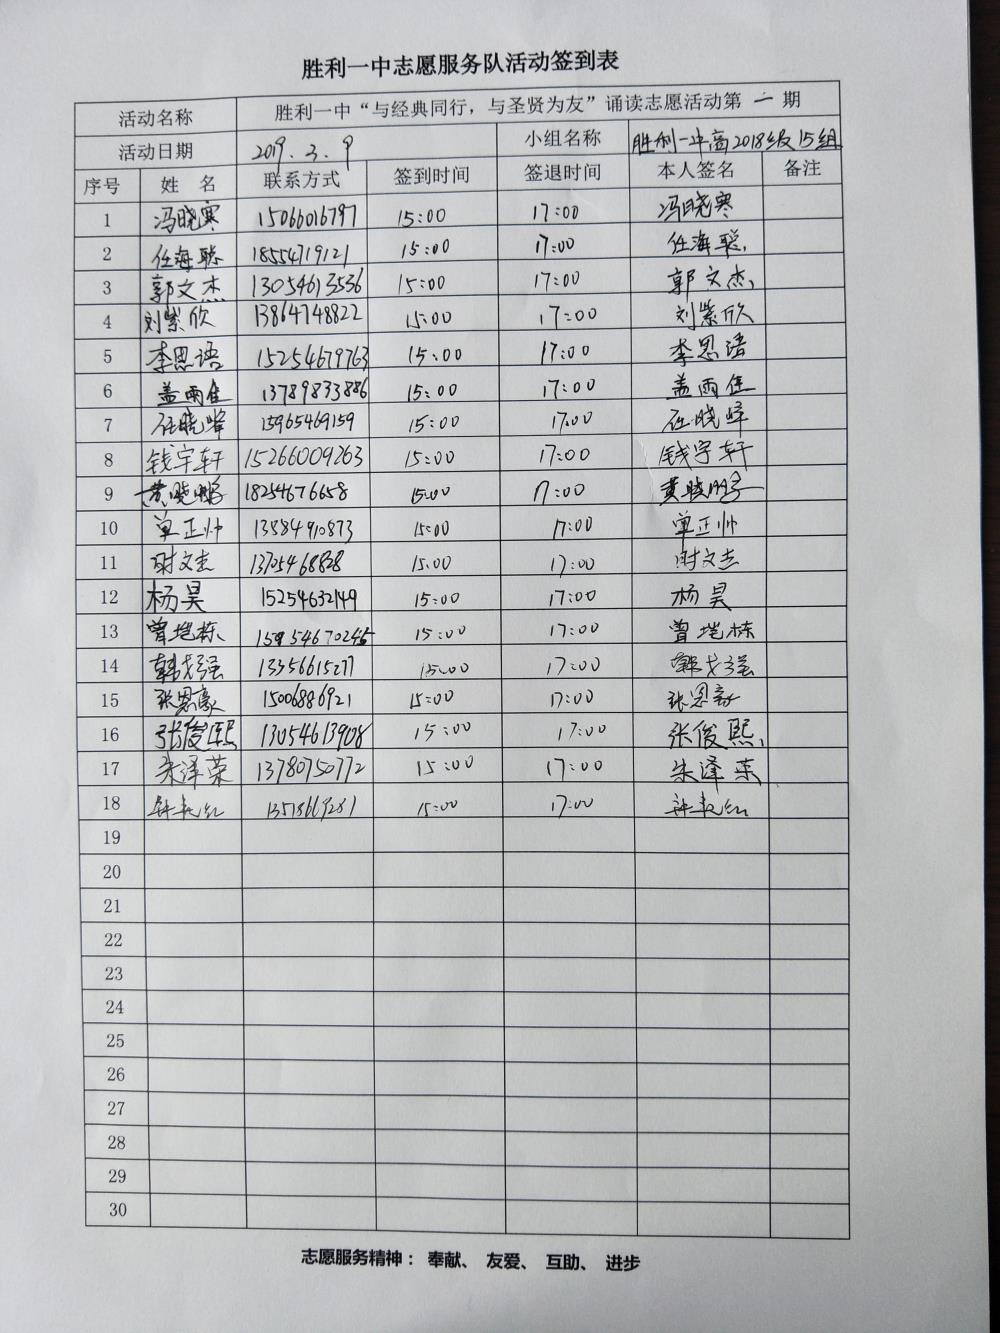 胜利一中志愿服务队活动签到表
活动名称 胜利一中“与经典同行，与圣贤为友”诵读志愿活动第 一 期
活动日期 2019.3.9 小组名称 胜利一中高2018级15组
序号 姓 名 联系方式 签到时间 签退时间 本人签名 备注
1 冯晓寒 15066016797 15:00 17:00 冯晓寒
2 任海聪 18554719121 15:00 17:00 任海聪
3 郭文杰 13054613536 15:00 17:00 郭文杰
4 刘紫欣 13864748822 15:00 17:00 刘紫欣
5 李恩语 15254679763 15:00 17:00 李恩语
6 盖雨佳 13789833886 15:00 17:00 盖雨佳
7 任晓峰 13965469159 15:00 17:00 任晓峰
8 钱宇轩 15266009263 15:00 17:00 钱宇轩
9 黄晓鹏 18254676658 15:00 17:00 黄晓鹏
10 单正帅 13884910873 15:00 17:00 单正帅
11 尉文杰 13705468828 15:00 17:00 尉文杰
12 杨昊 15254632149 15:00 17:00 杨昊
13 曾垲栋 15:00 17:00 曾垲栋
14 韩戈强 13356615277 15:00 17:00 韩戈强
15 张恩豪 15006886921 15:00 17:00 张恩豪
16 张俊熙 13054613908 15:00 17:00 张俊熙
17 朱泽荣 13780750772 15:00 17:00 朱泽荣
18 15:00 17:00
19
20
21
22
23
24
25
26
27
28
29
30
志愿服务精神： 奉献、 友爱、 互助、 进步